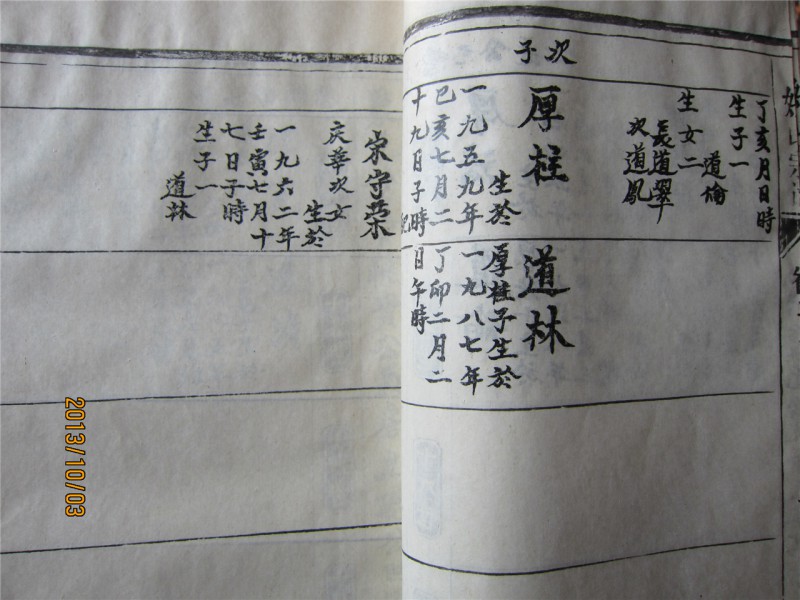 丁亥月日時
生子一
道倫
生女二
長道翠
次道鳳
次子
厚柱
生於
一九五九年
己亥七月二
十九日子時
道林
厚柱子生於
一九八七年
丁卯二月二
日午時
宋守荣
庆華次女
生於
一九六二年
壬寅七月十
七日子時
生子一
道林
2013/10/03